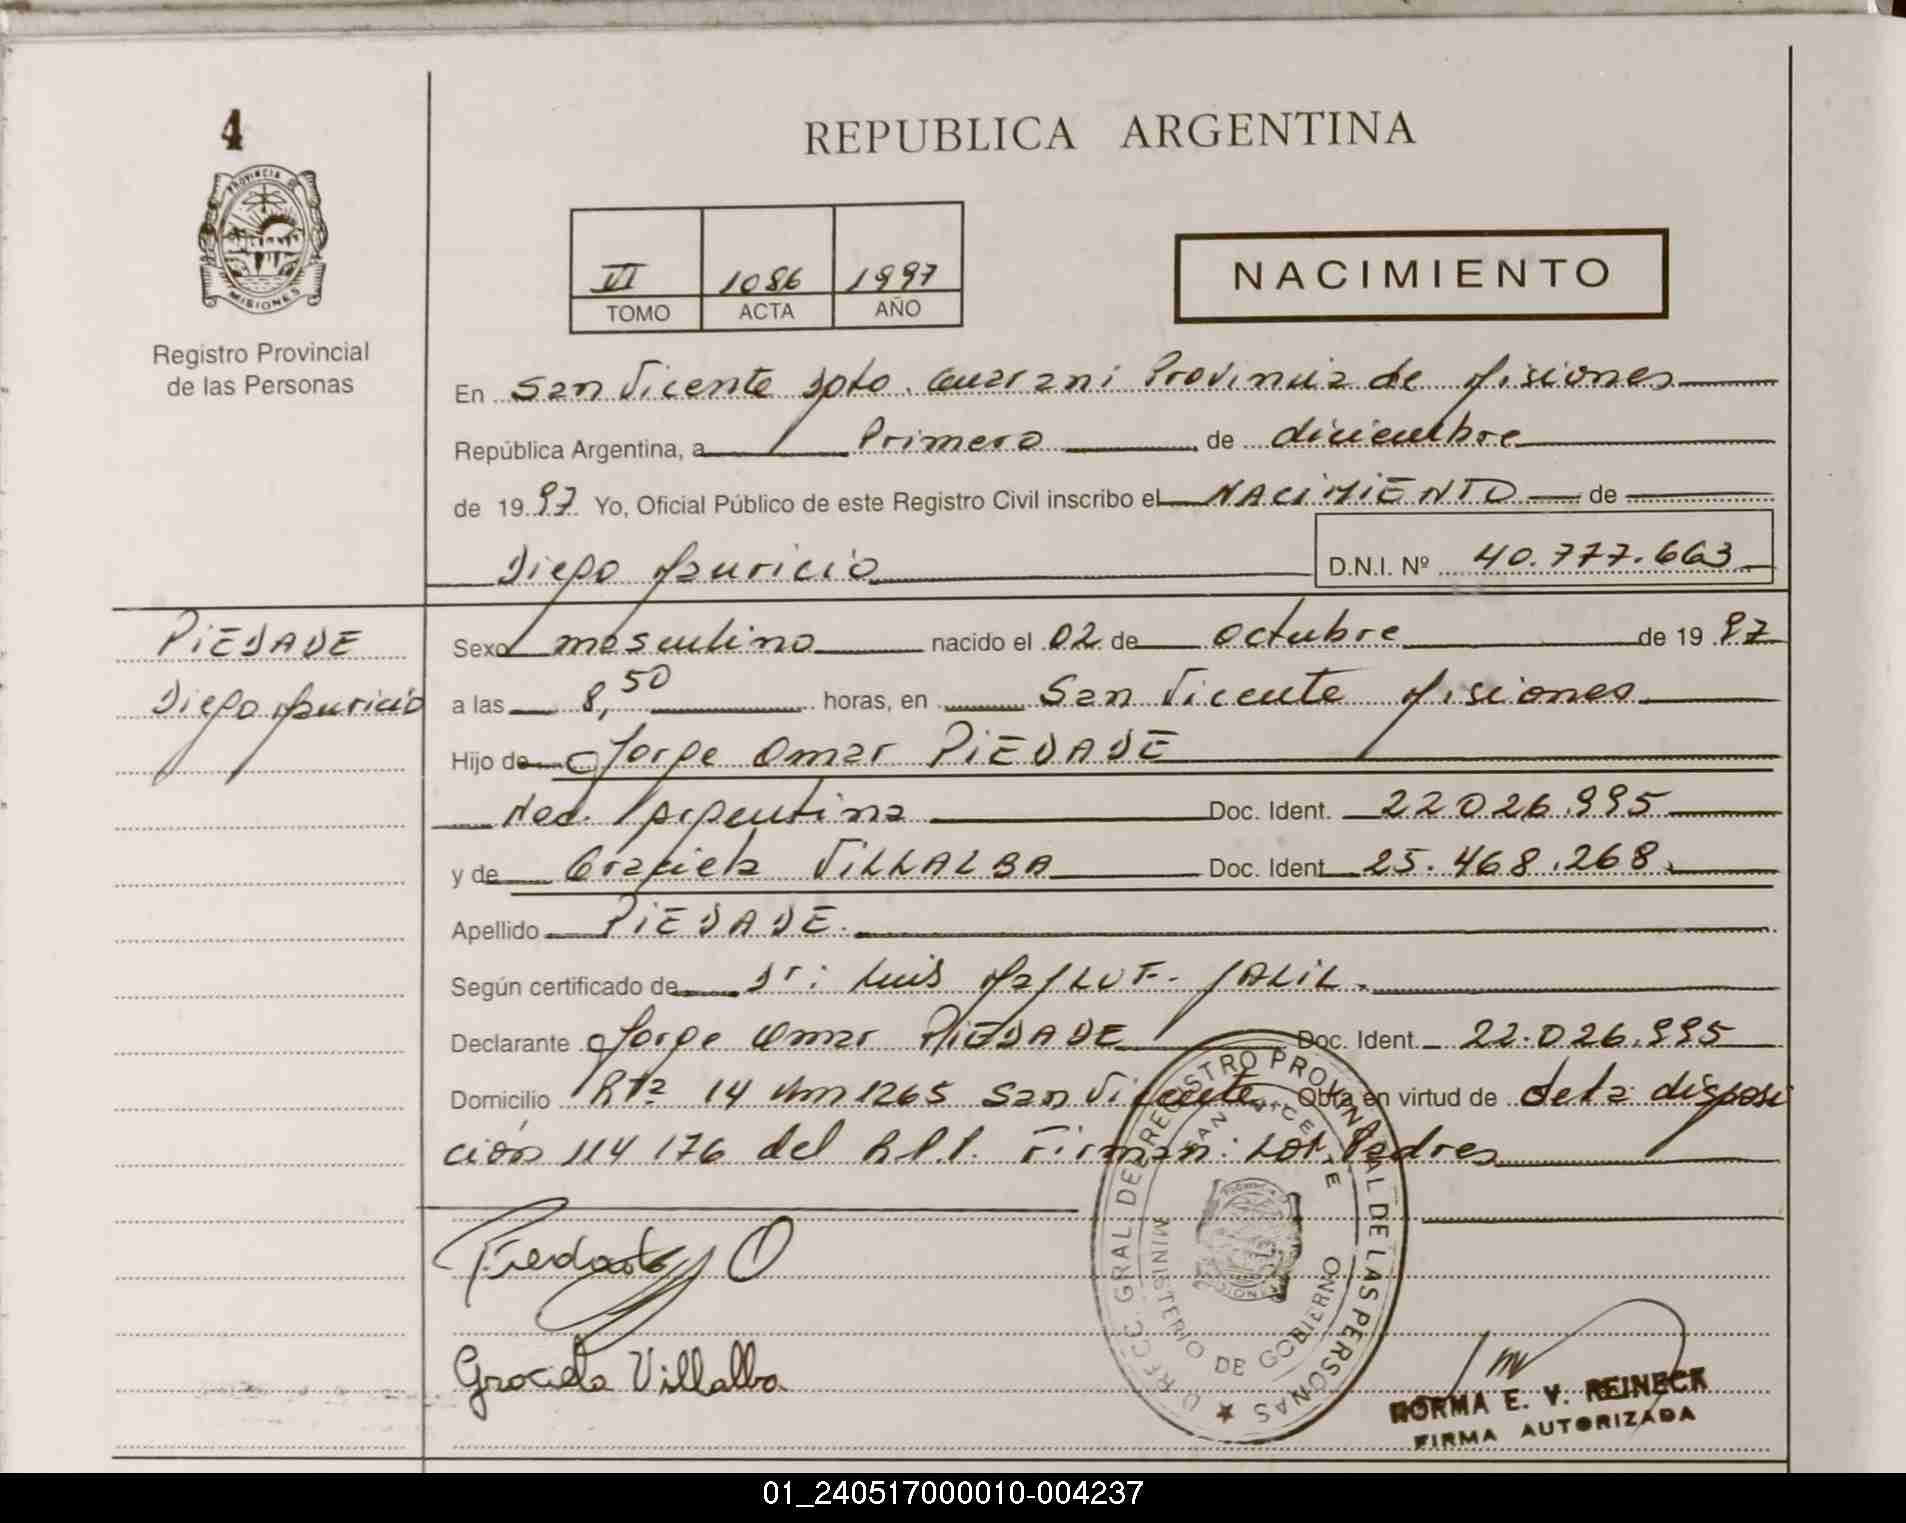 4
REPUBLICA ARGENTINA
PROVINCIA DE
MISIONES
Registro Provincial
de las Personas
VI 1086 1997
TOMO ACTA AÑO
NACIMIENTO
En San Vicente Dpto. Guarani Provincia de Misiones
República Argentina, a Primero de diciembre
de 1997 Yo, Oficial Público de este Registro Civil inscribo el NACIMIENTO de
Diego Mauricio D.N.I. Nº 40.777.663
PIEDADE
Diego Mauricio
Sexo masculino nacido el 02 de octubre de 1997
a las 8,50 horas, en San Vicente Misiones
Hijo de Jorge Omar PIEDADE
Nac. Argentina Doc. Ident. 22026.995
y de Graciela VILLALBA Doc. Ident 25.468.268
Apellido PIEDADE.
Según certificado de Dr: Luis JALIL.
Declarante Jorge Omar PIEDADE Doc. Ident. 22.026.995
Domicilio Rta 14 Km 1265 San Vicente Obra en virtud de de la disposi
ción 114 176 del R.P.P. Firman: Los Padres
Piedade O
Graciela Villalba
DIRECC. GRAL. DEL REGISTRO PROVINCIAL DE LAS PERSONAS
SAN VICENTE
MINISTERIO DE GOBIERNO
NORMA E. V. REINECK
FIRMA AUTORIZADA
01_240517000010-004237